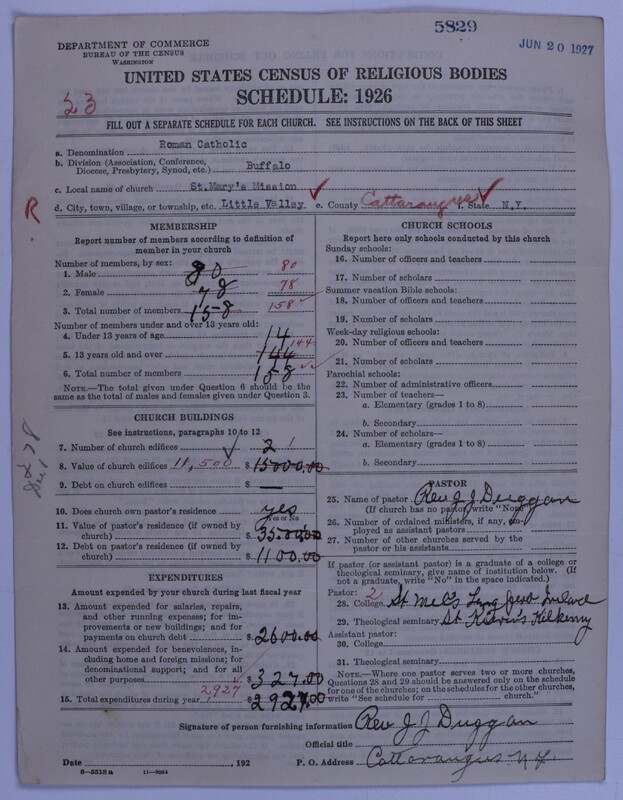 5829
JUN 20 1927
DEPARTMENT OF COMMERCE
BUREAU OF THE CENSUS
WASHINGTON
UNITED STATES CENSUS OF RELIGIOUS BODIES
SCHEDULE: 1926
23
FILL OUT A SEPARATE SCHEDULE FOR EACH CHURCH. SEE INSTRUCTIONS ON THE BACK OF THIS SHEET
a. Denomination Roman Catholic
b. Division (Association, Conference, Diocese, Presbytery, Synod, etc.) Buffalo
c. Local name of church St.Mary's Mission
R
d. City, town, village, or township, etc. Little Valley. e. County Cattaraugus f. State N.Y.
MEMBERSHIP
Report number of members according to definition of
member in your church
Number of members, by sex:
1. Male 80 80
2. Female 78 78
3. Total number of members 158 158
Number of members under and over 13 years old:
4. Under 13 years of age 14
5. 13 years old and over 144 144
6. Total number of members 158
NOTE.—The total given under Question 6 should be
the same as the total of males and females given under Question 3.
CHURCH BUILDINGS
See instructions, paragraphs 10 to 12
7. Number of church edifices 2 1
8. Value of church edifices 11,500 $ 15000.00
9. Debt on church edifices $ —
10. Does church own pastor's residence? yes
Yes or No
11. Value of pastor's residence (if owned by
church) $ 3500.00
12. Debt on pastor's residence (if owned by
church) $ 1100.00
EXPENDITURES
Amount expended by your church during last fiscal year
13. Amount expended for salaries, repairs,
and other running expenses; for im-
provements or new buildings; and for
payments on church debt $ 2600.00
14. Amount expended for benevolences, in-
cluding home and foreign missions; for
denominational support; and for all
other purposes $ 327.00
2,927
15. Total expenditures during year $ 2927.00
CHURCH SCHOOLS
Report here only schools conducted by this church
Sunday schools:
16. Number of officers and teachers
17. Number of scholars
Summer vacation Bible schools:
18. Number of officers and teachers
19. Number of scholars
Week-day religious schools:
20. Number of officers and teachers
21. Number of scholars
Parochial schools:
22. Number of administrative officers
23. Number of teachers—
a. Elementary (grades 1 to 8)
b. Secondary
24. Number of scholars—
a. Elementary (grades 1 to 8)
b. Secondary
PASTOR
25. Name of pastor Rev J J Duggan
(If church has no pastor, write "None")
26. Number of ordained ministers, if any, em-
ployed as assistant pastors
27. Number of other churches served by the
pastor or his assistants
If pastor (or assistant pastor) is a graduate of a college or
theological seminary, give name of institution below. (If
not a graduate, write "No" in the space indicated.)
Pastor: 2
28. College St Mel's Ireland
29. Theological seminary St Kilkenny
Assistant pastor:
30. College
31. Theological seminary
NOTE.—Where one pastor serves two or more churches,
Questions 28 and 29 should be answered only on the schedule
for one of the churches; on the schedules for the other churches,
write "See schedule for church."
Signature of person furnishing information Rev J J Duggan
Official title
Date , 192
P. O. Address Cattaraugus N.Y.
8—5518a 11—9264